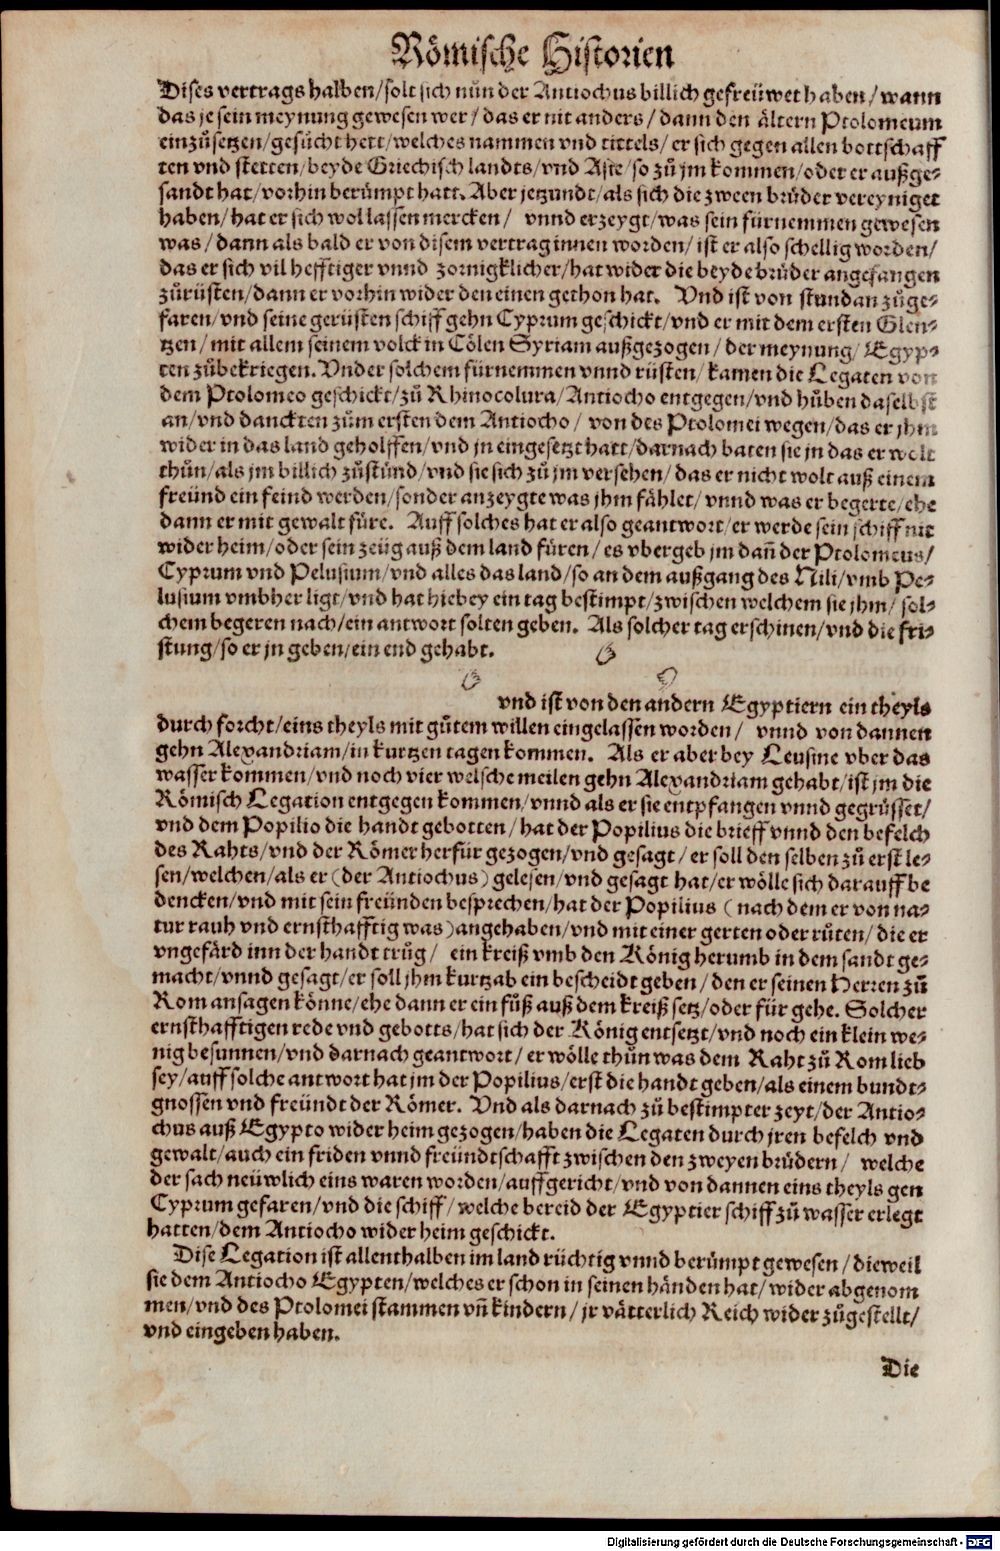 Römische Historien
Dises vertrags halben/solt sich nůn der Antiochus billich gefreüwet haben/wann
das je sein meynung gewesen wer/das er nit anders/dann den ältern Ptolomeum
einzůsetzen/gesůcht hett/welches nammen vnd tittels/er sich gegen allen bottschaff
ten vnd stetten/beyde Griechisch landts/vnd Asie/so zů jm kommen/oder er außge-
sandt hat/vorhin berümpt hatt. Aber jetzundt/als sich die zween brüder vereyniget
haben/hat er sich wol lassen mercken/ vnnd erzeygt/was sein fürnemmen gewesen
was/dann als bald er von disem vertrag innen worden/ist er also schellig worden/
das er sich vil hefftiger vnnd zornigklicher/hat wider die beyde brüder angefangen
zůrüsten/dann er vorhin wider den einen gethon hat. Vnd ist von stund an zůge-
faren/vnd seine gerüsten schiff gehn Cyprum geschickt/vnd er mit dem ersten Glen-
tzen/mit allem seinem volck in Cölen Syriam außgezogen/der meynung/Egyp-
ten zůbekriegen. Vnder solchem fürnemmen vnnd rüsten/kamen die Legaten von
dem Ptolomeo geschickt/zů Rhinocolura/Antiocho entgegen/vnd hůben daselbst
an/vnd danckten zům ersten dem Antiocho/ von des Ptolomei wegen/das er jhm
wider in das land geholffen/vnd jn eingesetzt hatt/darnach baten sie jn das er welt
thůn/als jm billich zůstůnd/vnd sie sich zů jm versehen/das er nicht wolt auß einem
freünd ein feind werden/sonder anzeygte was jhm fählet/vnnd was er begerte/ehe
dann er mit gewalt füre. Auff solches hat er also geantwort/er werde sein schiff nit
wider heim/oder sein zeüg auß dem land füren/es vbergeb jm dañ der Ptolomeus/
Cyprum vnd Pelusium/vnd alles das land/so an dem außgang des Nili/vmb Pe-
lusium vmbher ligt/vnd hat hiebey ein tag bestimpt/zwischen welchem sie jhm/sol-
chem begeren nach/ein antwort solten geben. Als solcher tag erschinen/vnd die fri-
stung/so er jn geben/ein end gehabt.
vnd ist von den andern Egyptiern ein theyls
durch forcht/eins theyls mit gůtem willen eingelassen worden/ vnnd von dannen
gehn Alexandriam/in kurtzen tagen kommen. Als er aber bey Leusine vber das
wasser kommen/vnd noch vier welsche meilen gehn Alexandriam gehabt/ist jm die
Römisch Legation entgegen kommen/vnnd als er sie entpfangen vnnd gegrüsset/
vnd dem Popilio die handt gebotten/hat der Popilius die brieff vnnd den befelch
des Rahts/vnd der Römer herfür gezogen/vnd gesagt/er soll den selben zů erst le-
sen/welchen/als er (der Antiochus) gelesen/vnd gesagt hat/er wölle sich darauff be
dencken/vnd mit sein freünden besprechen/hat der Popilius (nach dem er von na-
tur rauh vnd ernsthafftig was) angehaben/vnd mit einer gerten oder růten/die er
vngefärd inn der handt trůg/ ein kreiß vmb den König herumb in dem sandt ge-
macht/vnnd gesagt/er soll jhm kurtz ab ein bescheidt geben/den er seinen Herren zů
Rom ansagen könne/ehe dann er ein fůß auß dem kreiß setz/oder für gehe. Solcher
ernsthafftigen rede vnd gebotts/hat sich der König entsetzt/vnd noch ein klein we-
nig besunnen/vnd darnach geantwort/er wölle thůn was dem Raht zů Rom lieb
sey/auff solche antwort hat jm der Popilius/erst die handt geben/als einem bundt-
gnossen vnd freündt der Römer. Vnd als darnach zů bestimpter zeyt/der Antio-
chus auß Egypto wider heim gezogen/haben die Legaten durch jren befelch vnd
gewalt/auch ein friden vnnd freündtschafft zwischen den zweyen brüdern/ welche
der sach neüwlich eins waren worden/auffgericht/vnd von dannen eins theyls gen
Cyprum gefaren/vnd die schiff/welche bereid der Egyptier schiff zů wasser erlegt
hatten/dem Antiocho wider heim geschickt.
Dise Legation ist allenthalben im land rüchtig vnnd berümpt gewesen/dieweil
sie dem Antiocho Egypten/welches er schon in seinen händen hat/wider abgenom
men/vnd des Ptolomei stammen vñ kindern/jr vätterlich Reich wider zůgestellt/
vnd eingeben haben.
Die
Digitalisierung gefördert durch die Deutsche Forschungsgemeinschaft - DFG